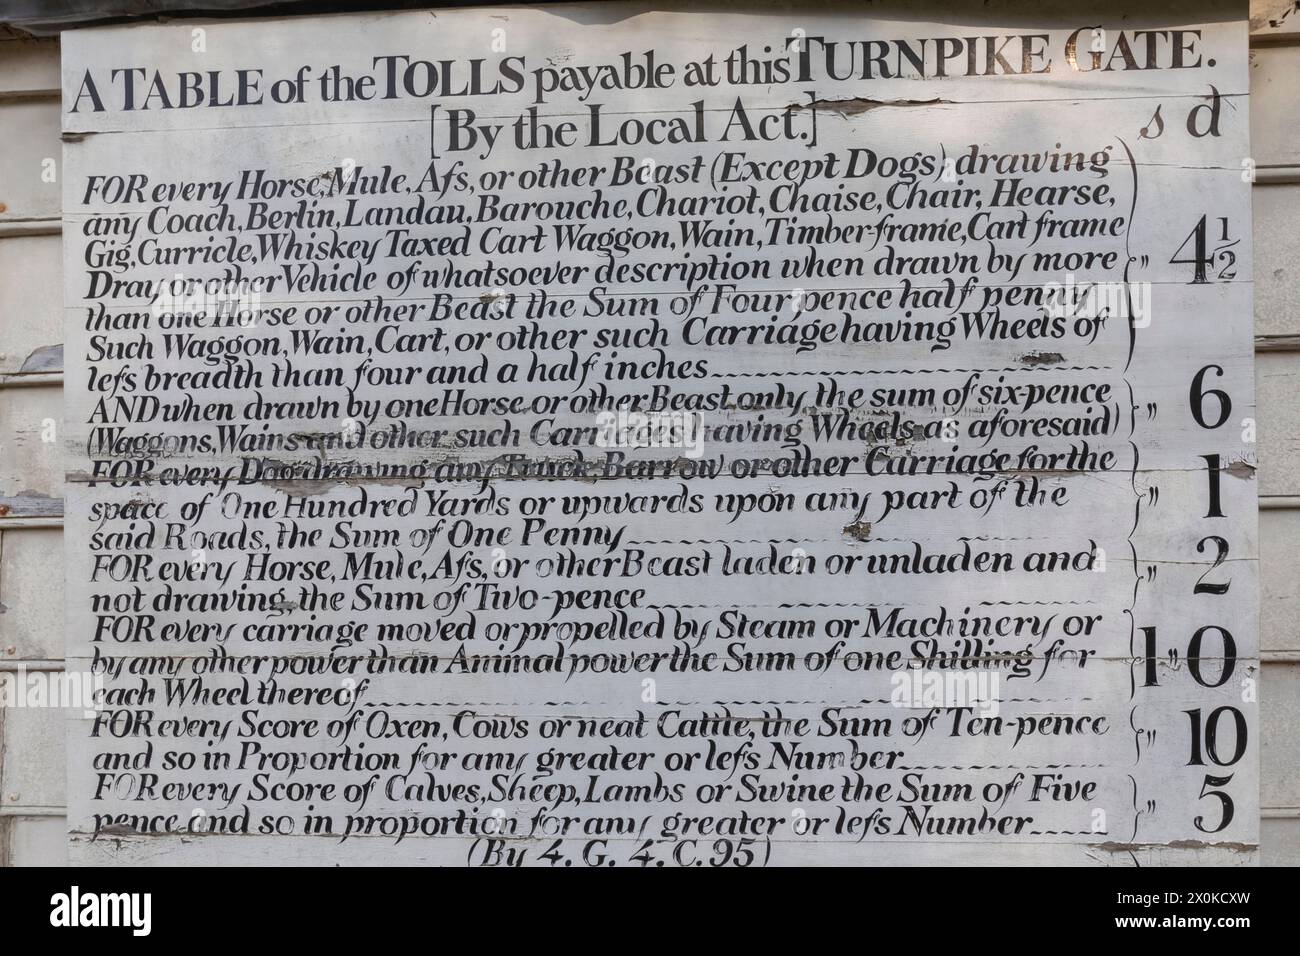 A TABLE of the TOLLS payable at this TURNPIKE GATE.
[By the Local Act.] s d
FOR every Horse, Mule, Aſs, or other Beast (Except Dogs) drawing
any Coach, Berlin, Landau, Barouche, Chariot, Chaise, Chair, Hearse,
Gig, Curricle, Whiskey Taxed Cart Waggon, Wain, Timber-frame, Cart frame
Dray or other Vehicle of whatsoever description when drawn by more " 4½
than one Horse or other Beast the Sum of Four pence half penny
Such Waggon, Wain, Cart, or other such Carriage having Wheels of
leſs breadth than four and a half inches
AND when drawn by one Horse or other Beast only the sum of six-pence " 6
(Waggons, Wains and other such Carriages having Wheels as aforesaid)
FOR every Dog drawing any Truck, Barrow or other Carriage for the
space of One Hundred Yards or upwards upon any part of the " 1
said Roads, the Sum of One Penny
FOR every Horse, Mule, Aſs, or other Beast laden or unladen and " 2
not drawing, the Sum of Two-pence
FOR every carriage moved or propelled by Steam or Machinery or
by any other power than Animal power the Sum of one Shilling for 1 " 0
each Wheel thereof
FOR every Score of Oxen, Cows or neat Cattle, the Sum of Ten-pence " 10
and so in Proportion for any greater or leſs Number
FOR every Score of Calves, Sheep, Lambs or Swine the Sum of Five " 5
pence and so in proportion for any greater or leſs Number
(By 4. G. 4. C. 95)
alamy
Image ID: 2X0KCXW
www.alamy.com